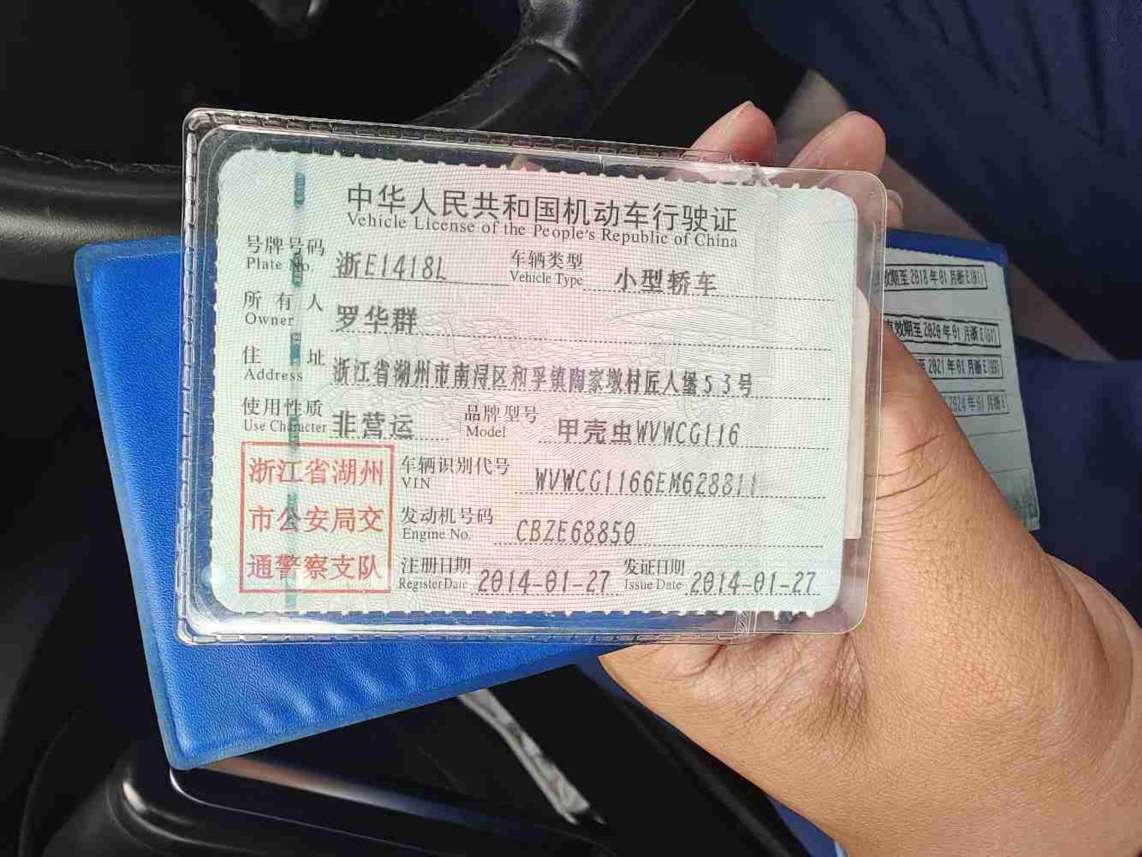 中华人民共和国机动车行驶证
Vehicle License of the People's Republic of China
号牌号码 浙E1418L 车辆类型 小型轿车
Plate No. Vehicle Type
所有人 罗华群
Owner
住址 浙江省湖州市南浔区和孚镇陶家墩村匠人堡53号
Address
使用性质 非营运 品牌型号 甲壳虫WVWCG116
Use Character Model
浙江省湖州
市公安局交
通警察支队
车辆识别代号 WVWCG1166EM628811
VIN
发动机号码 CBZE68850
Engine No.
注册日期 2014-01-27 发证日期 2014-01-27
Register Date Issue Date
效期至2018年01月浙E
有效期至2020年01月浙E
至2021年01月浙E
2024年01月浙E